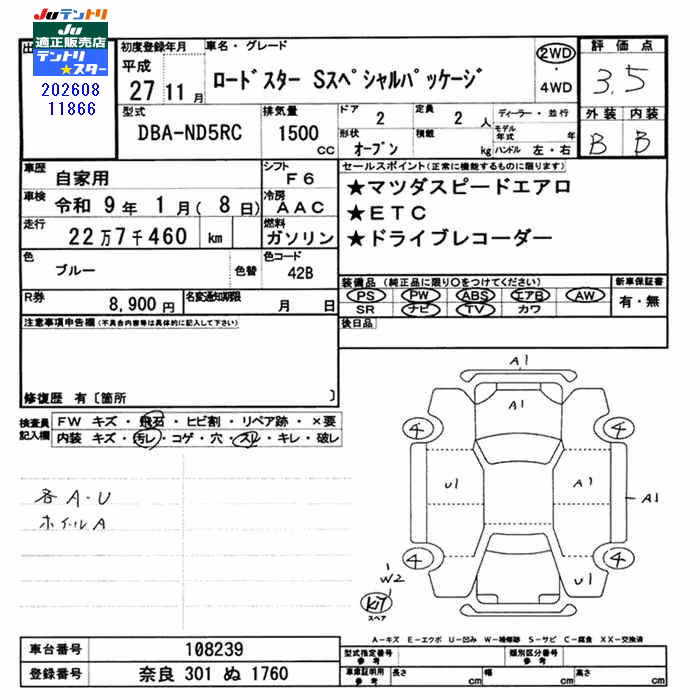 Juテントリ
Ju
適正販売店
テントリ
★スター
202608
11866
出
初度登録年月
平成
27 11 月
車名・グレード
ロードスター Sスペシャルパッケージ
2WD
・
4WD
評価点
3.5
外装 内装
B B
型式
DBA-ND5RC
排気量
1500
cc
ドア
2
定員
2 人
ディーラー・並行
形状
オープン
積載
kg
モデル年式 年
ハンドル 左・右
車歴
自家用
シフト
F6
車検
令和 9年 1月( 8日)
冷房
AAC
走行
22万7千460 km
燃料
ガソリン
色
ブルー
色替
色コード
42B
R券
8,900 円
名変通知期限
月 日
セールスポイント(正常に機能するものに限ります)
★マツダスピードエアロ
★ETC
★ドライブレコーダー
装備品 (純正品に限り○をつけてください)
新車保証書
PS PW ABS エアB AW
SR ナビ TV カワ
有・無
後日品
注意事項申告欄(不具合内容等は具体的に記入して下さい)
修復歴 有〔箇所 〕
検査員
記入欄
FW キズ・飛石・ヒビ割・リペア跡・×要
内装 キズ・汚レ・コゲ・穴・スレ・キレ・破レ
各A・U
ホイルA
A1
A1
4
4
U1
A1
A1
4
4
U1
W2
KIT
スペア
A-キズ E-エクボ U-凹み W-補修跡 S-サビ C-腐食 XX-交換済
車台番号
108239
登録番号
奈良 301 ぬ 1760
型式指定番号
参考
類別区分番号
参考
車庫証明用
参考
長さ cm
幅 cm
高さ cm